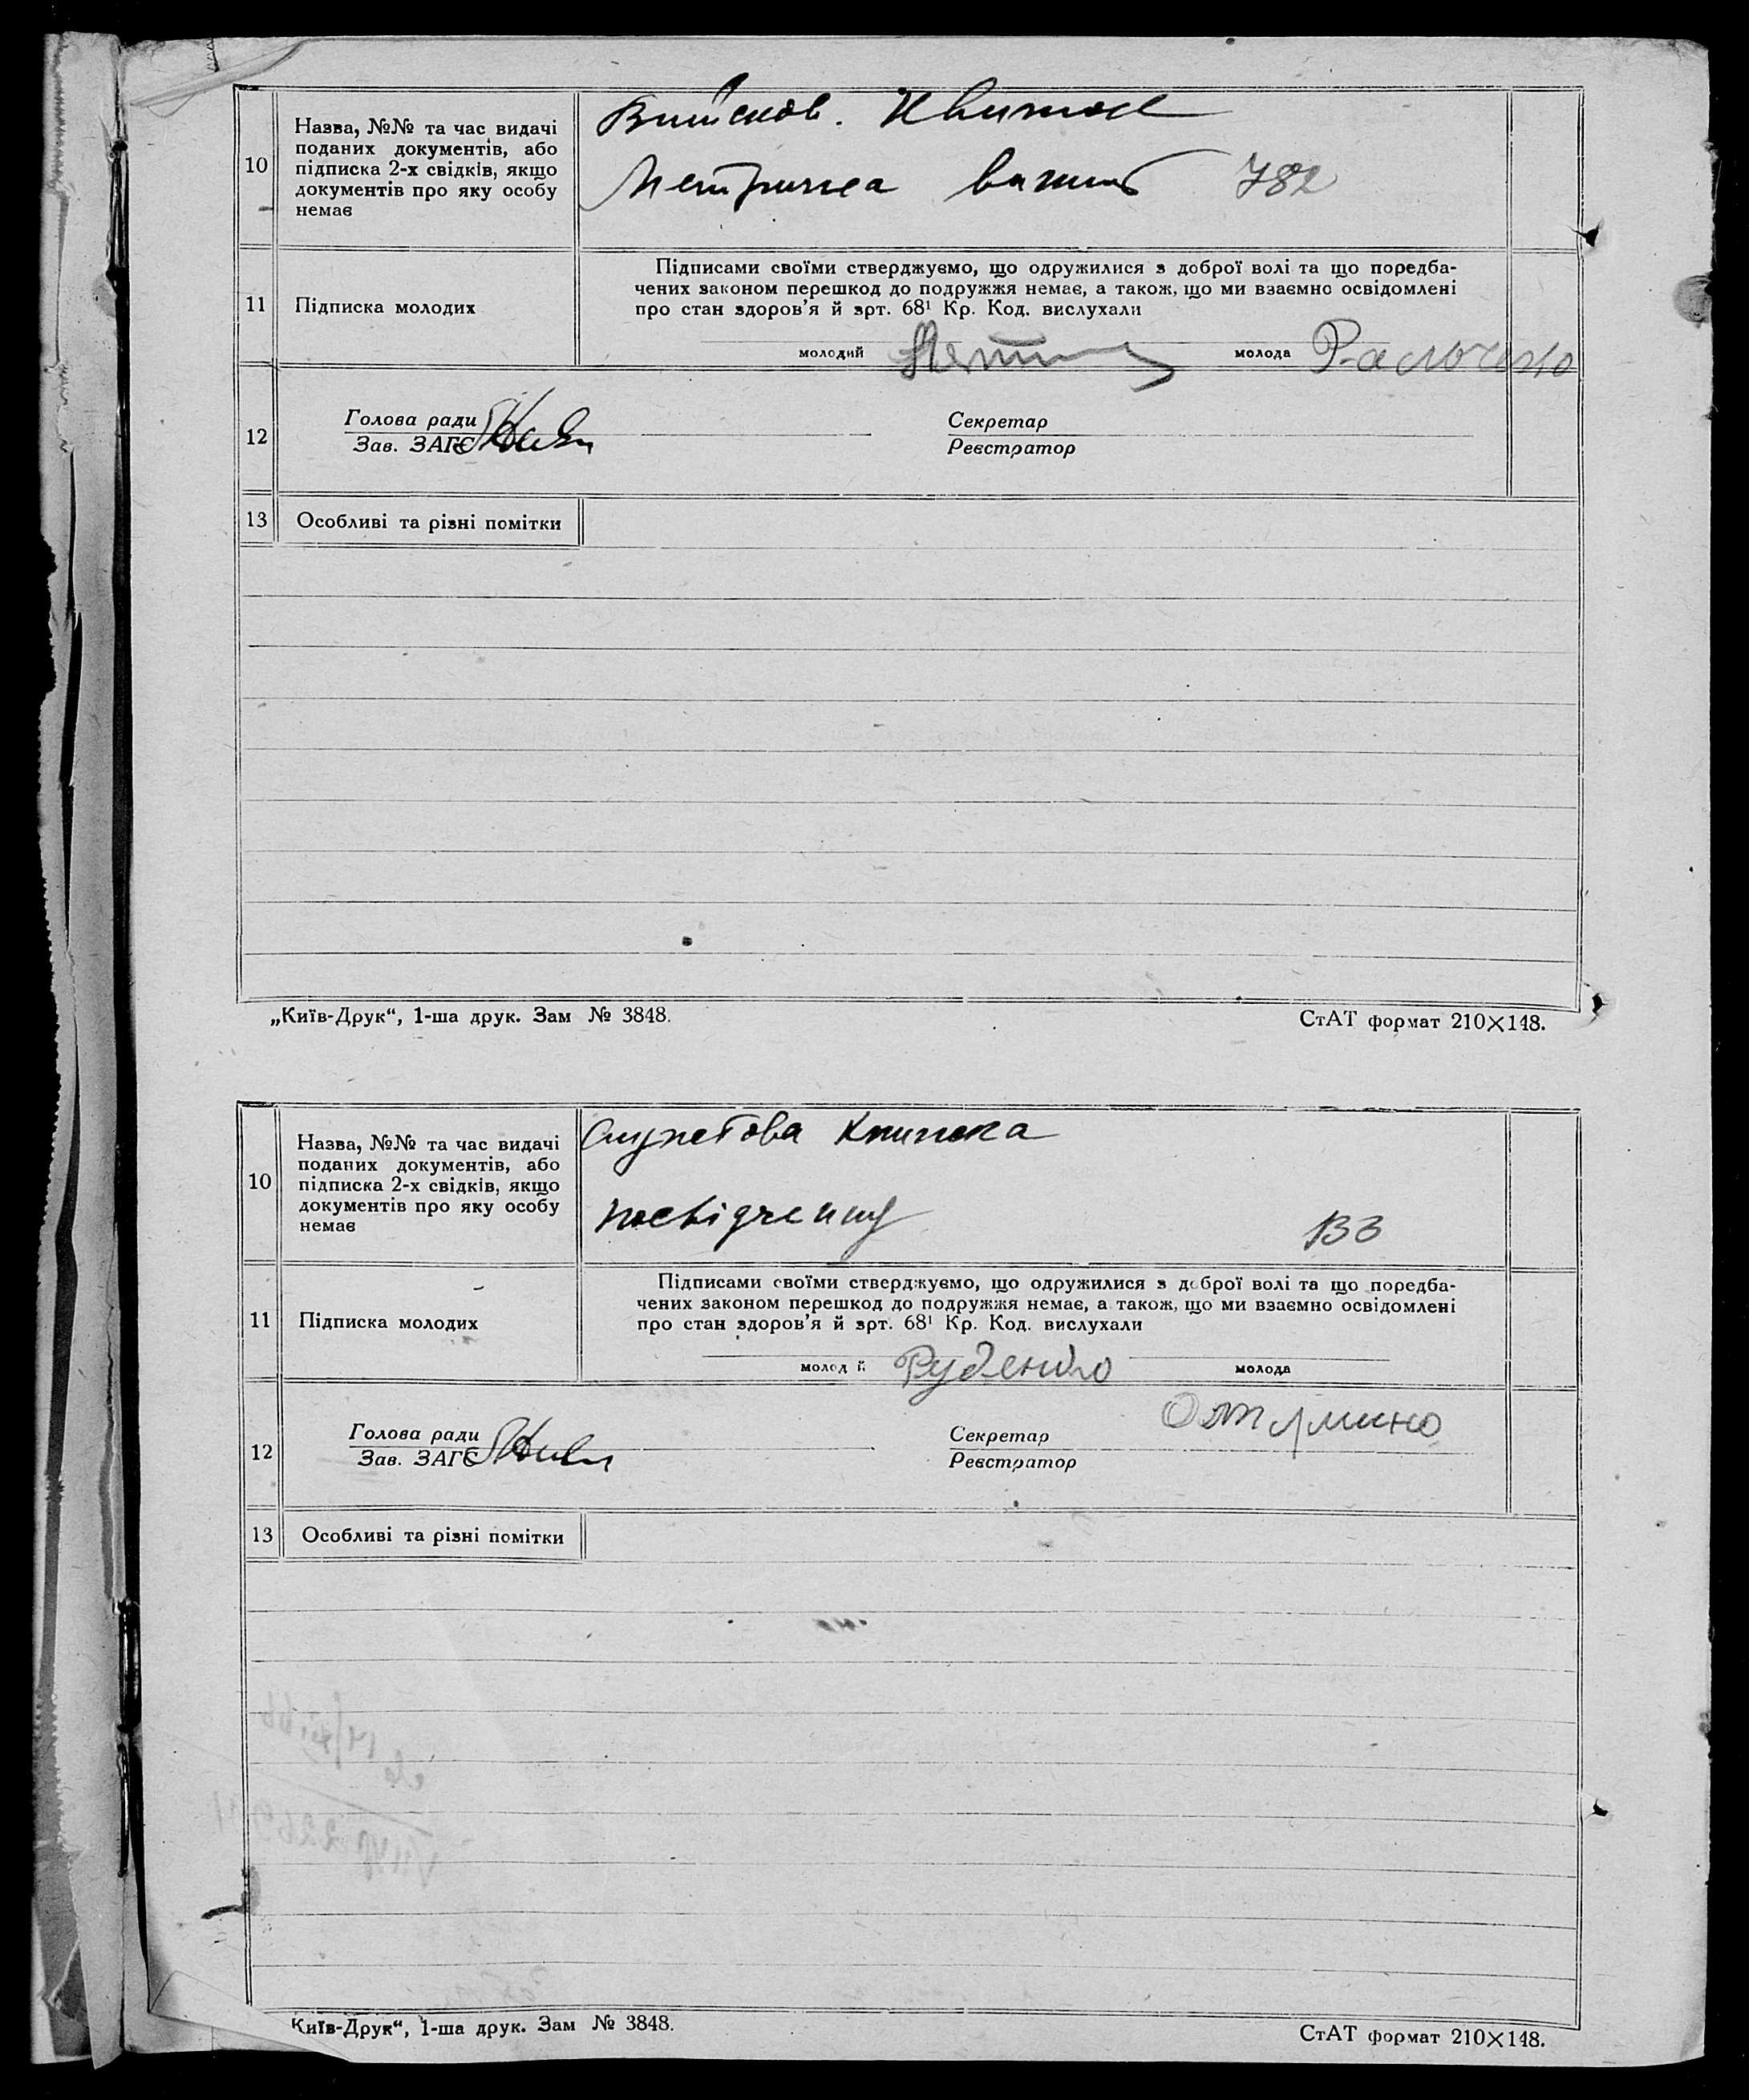 10
Назва, №№ та час видачі
поданих документів, або
підписка 2-х свідків, якщо
документів про яку особу
немає
Війсков. Квиток
Метричка 782
11
Підписка молодих
Підписами своїми стверджуємо, що одружилися з доброї волі та що поредба-
чених законом перешкод до подружжя немає, а також, що ми взаємно освідомлені
про стан здоров'я й арт. 68¹ Кр. Код. вислухали
молодий молода
12
Голова ради
Зав. ЗАГС
Секретар
Реєстратор
13
Особливі та різні помітки
„Київ-Друк“, 1-ша друк. Зам № 3848.
СтАТ формат 210×148.
10
Назва, №№ та час видачі
поданих документів, або
підписка 2-х свідків, якщо
документів про яку особу
немає
Книжка
посвідчення
11
Підписка молодих
Підписами своїми стверджуємо, що одружилися з доброї волі та що поредба-
чених законом перешкод до подружжя немає, а також, що ми взаємно освідомлені
про стан здоров'я й арт. 68¹ Кр. Код. вислухали
молодй Руденко молода
12
Голова ради
Зав. ЗАГС
Секретар
Реєстратор
13
Особливі та різні помітки
Київ-Друк“, 1-ша друк. Зам № 3848.
СтАТ формат 210×148.